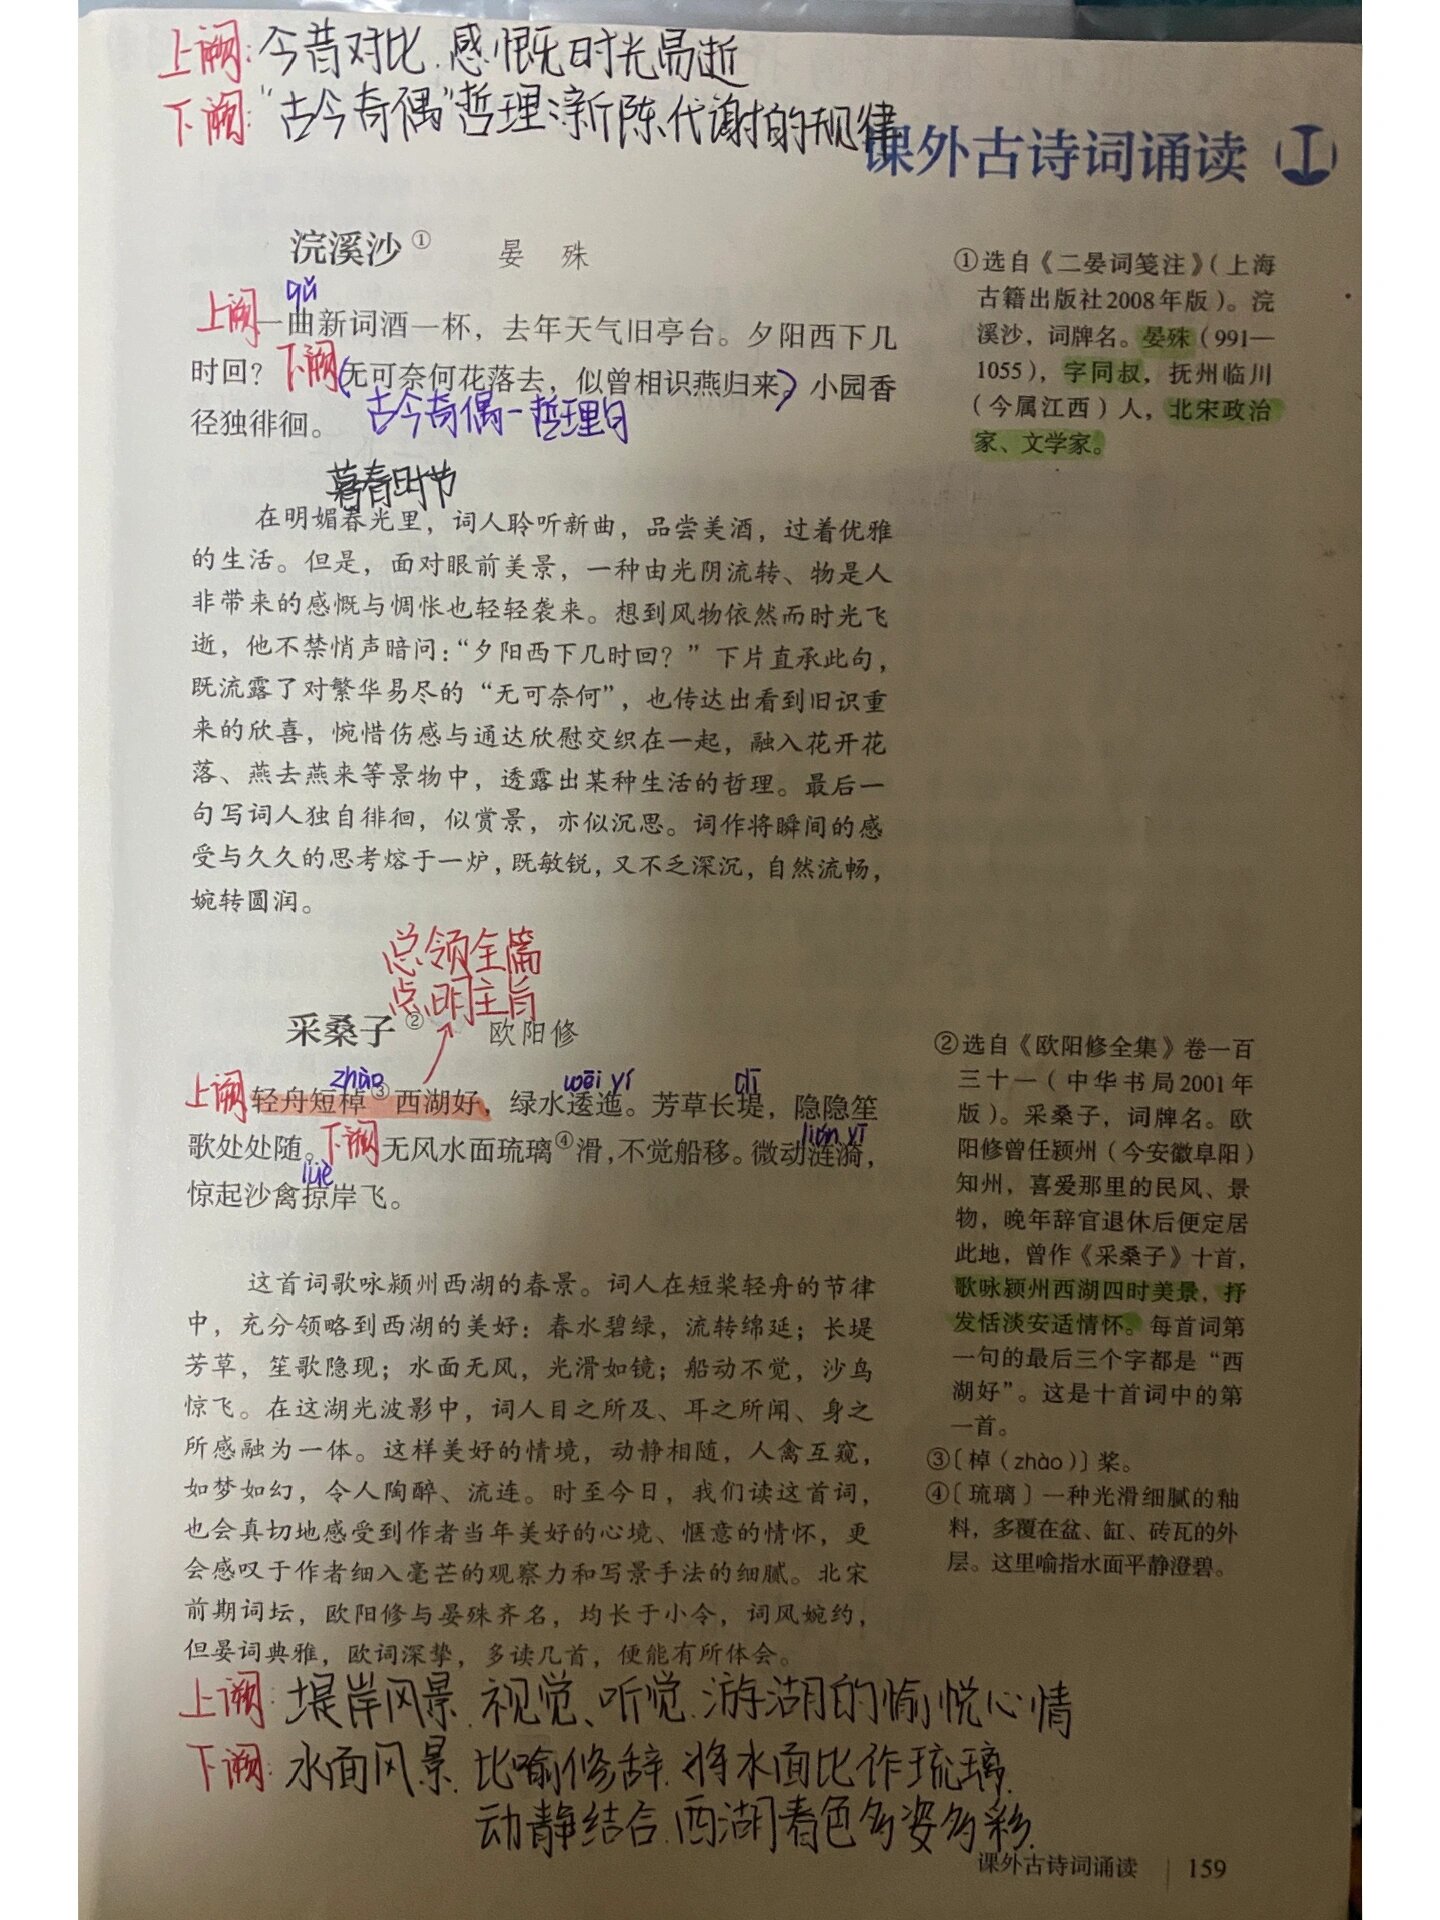 上阙:今昔对比.感慨时光易逝
下阙:“古今奇偶”哲理:新陈代谢的规律
课外古诗词诵读
浣溪沙① 晏 殊
qǔ
上阙一曲新词酒一杯，去年天气旧亭台。夕阳西下几
时回？下阙(无可奈何花落去，似曾相识燕归来。)小园香
径独徘徊。
古今奇偶-哲理句
暮春时节
在明媚春光里，词人聆听新曲，品尝美酒，过着优雅
的生活。但是，面对眼前美景，一种由光阴流转、物是人
非带来的感慨与惆怅也轻轻袭来。想到风物依然而时光飞
逝，他不禁悄声暗问：“夕阳西下几时回？”下片直承此句，
既流露了对繁华易尽的“无可奈何”，也传达出看到旧识重
来的欣喜，惋惜伤感与通达欣慰交织在一起，融入花开花
落、燕去燕来等景物中，透露出某种生活的哲理。最后一
句写词人独自徘徊，似赏景，亦似沉思。词作将瞬间的感
受与久久的思考熔于一炉，既敏锐，又不乏深沉，自然流畅，
婉转圆润。
①选自《二晏词笺注》（上海
古籍出版社2008年版）。浣
溪沙，词牌名。晏殊（991—
1055），字同叔，抚州临川
（今属江西）人，北宋政治
家、文学家。
总领全篇
点明主旨
采桑子② 欧阳修
zhào wēi yí dī
上阙轻舟短棹③西湖好，绿水逶迤。芳草长堤，隐隐笙
歌处处随。下阙无风水面琉璃④滑，不觉船移。微动涟漪，
lián yī
lüè
惊起沙禽掠岸飞。
这首词歌咏颍州西湖的春景。词人在短桨轻舟的节律
中，充分领略到西湖的美好：春水碧绿，流转绵延；长堤
芳草，笙歌隐现；水面无风，光滑如镜；船动不觉，沙鸟
惊飞。在这湖光波影中，词人目之所及、耳之所闻、身之
所感融为一体。这样美好的情境，动静相随，人禽互窥，
如梦如幻，令人陶醉、流连。时至今日，我们读这首词，
也会真切地感受到作者当年美好的心境、惬意的情怀，更
会感叹于作者细入毫芒的观察力和写景手法的细腻。北宋
前期词坛，欧阳修与晏殊齐名，均长于小令，词风婉约，
但晏词典雅，欧词深挚，多读几首，便能有所体会。
②选自《欧阳修全集》卷一百
三十一（中华书局2001年
版）。采桑子，词牌名。欧
阳修曾任颍州（今安徽阜阳）
知州，喜爱那里的民风、景
物，晚年辞官退休后便定居
此地，曾作《采桑子》十首，
歌咏颍州西湖四时美景，抒
发恬淡安适情怀。每首词第
一句的最后三个字都是“西
湖好”。这是十首词中的第
一首。
③〔棹（zhào）〕桨。
④〔琉璃〕一种光滑细腻的釉
料，多覆在盆、缸、砖瓦的外
层。这里喻指水面平静澄碧。
上阙:堤岸风景.视觉、听觉.游湖的愉悦心情
下阙:水面风景.比喻修辞.将水面比作琉璃.
动静结合.西湖春色多姿多彩.
课外古诗词诵读 | 159